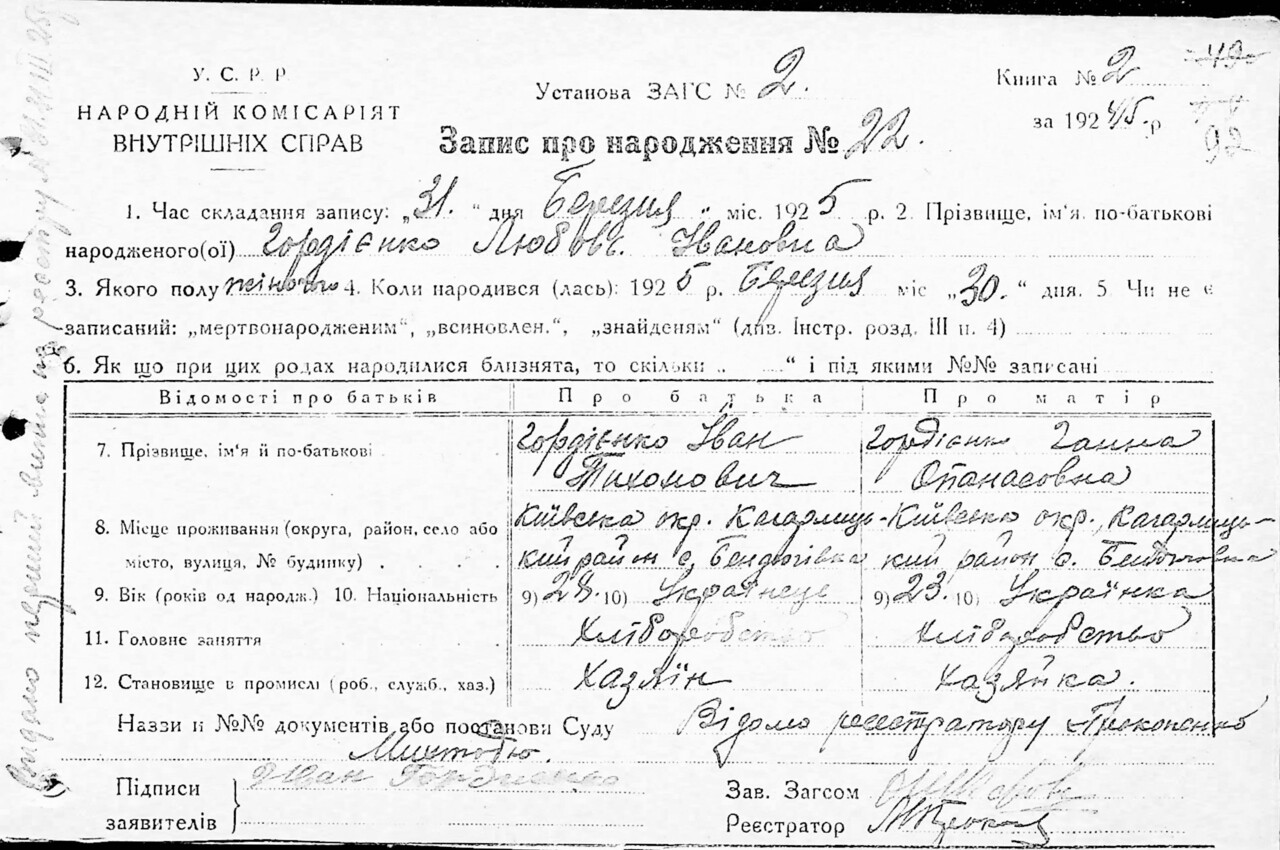 У. С. Р. Р
НАРОДНІЙ КОМІСАРІЯТ
ВНУТРІШНІХ СПРАВ
Установа ЗАГС № 2.
Запис про народження № 22.
Книга № 2
за 192 4/5 р
42
92
1. Час складання запису: „31." дня Березня " міс. 1925 р. 2. Прізвище, ім'я по-батькові
народженого(ої) Гордієнко Любовь Івановна
3. Якого полу жіночого 4. Коли народився (лась): 1925 р. Березня міс „30." дня. 5. Чи не є
записаний: „мертвонародженим", „всиновлен.", „знайденям" (див. Інстр. розд. III п. 4)
6. Як що при цих родах народилися близнята, то скільки „ " і під якими №№ записані
Відомості про батьків Про батька Про матір
7. Прізвище, ім'я й по-батькові Гордієнко Іван Гордієнко Ганна
Тихонович Опанасовна
8. Місце проживання (округа, район, село або Київська окр. Кагарлиць- Київська окр., Кагарлиць-
місто, вулиця, № будинку) . . . кий район с. Бендюгівка кий район с. Бендюговка
9. Вік (років од народж.) 10. Національність 9) 28. 10) Українець 9) 23. 10) Українка
11. Головне заняття Хліборобство Хліборобство
12. Становище в промислі (роб., служб., хаз.) Хазяїн Хазяйка.
Назви и №№ документів або постанови Суду Відомо реєстратору Прокопенко
Підписи
заявителів
Иван Гордиенко
Зав. Загсом
Реєстратор
Видано перший витяг по реєстру № 31.III 25 р.